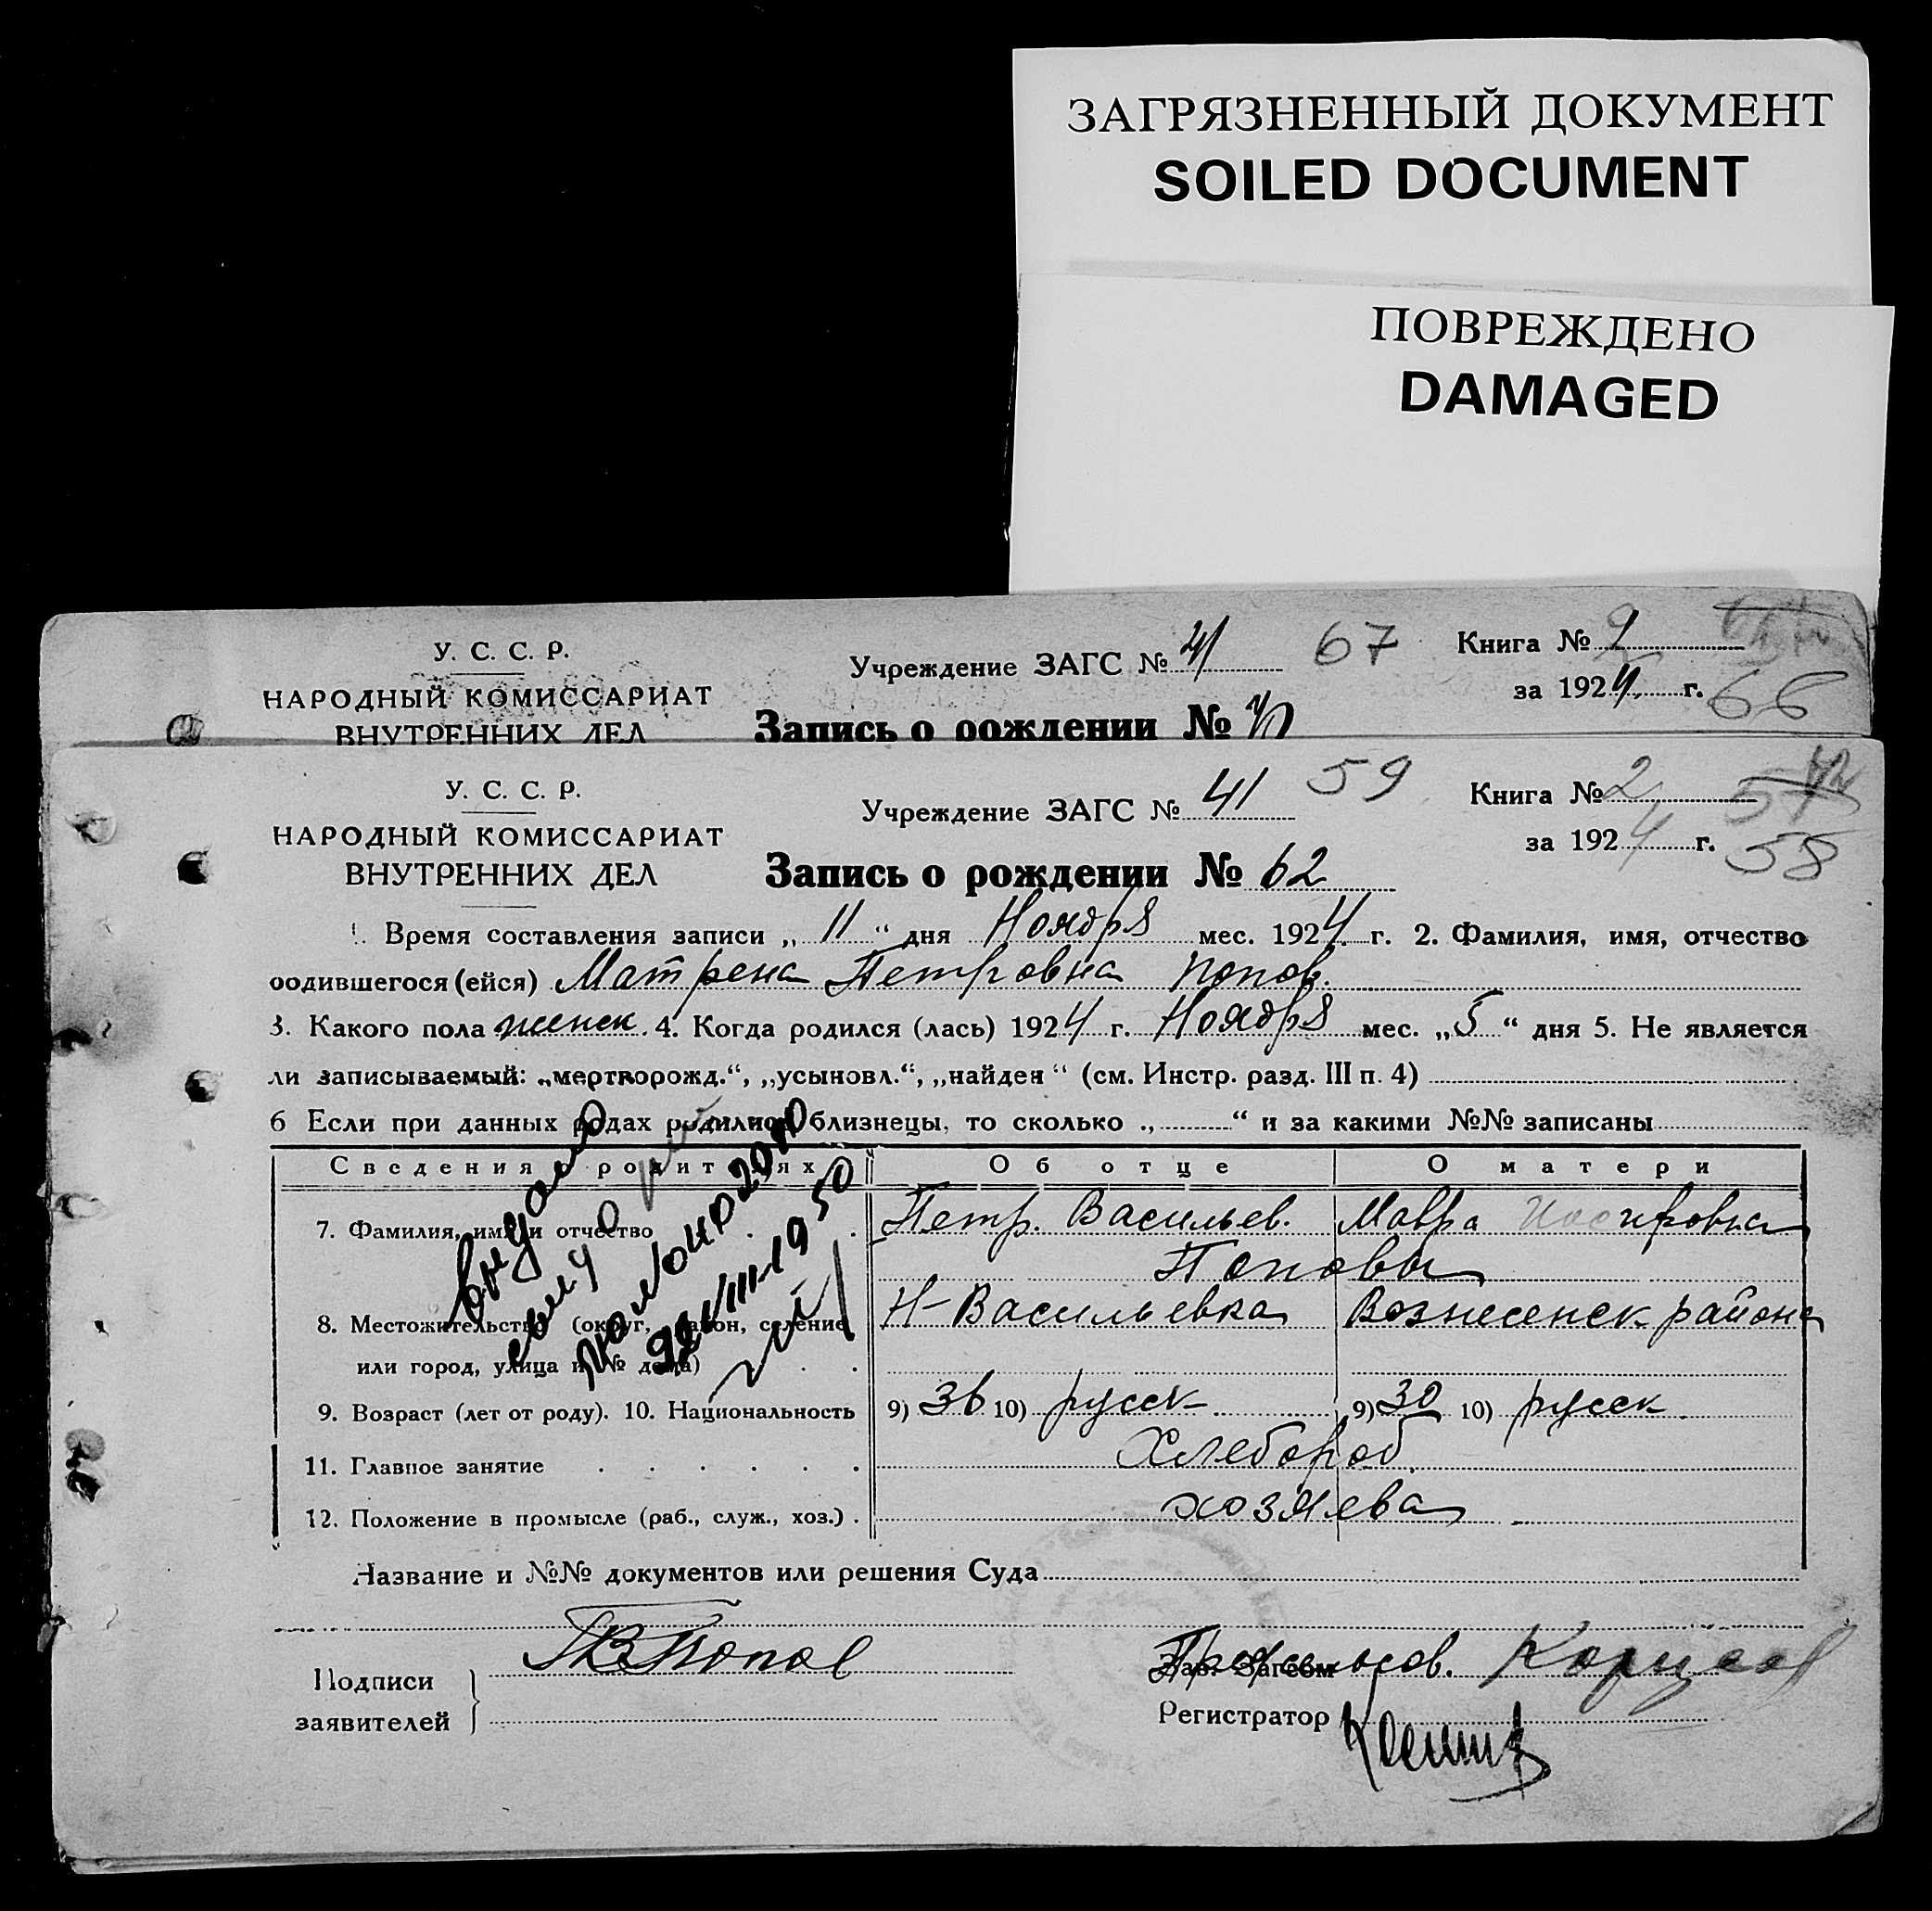 ЗАГРЯЗНЕННЫЙ ДОКУМЕНТ
SOILED DOCUMENT
ПОВРЕЖДЕНО
DAMAGED
У. С. С. Р.
НАРОДНЫЙ КОМИССАРИАТ
ВНУТРЕННИХ ДЕЛ
Учреждение ЗАГС № 41 67
Книга № 2
за 1924 г. 66
Запись о рождении №
У. С. С. Р.
НАРОДНЫЙ КОМИССАРИАТ
ВНУТРЕННИХ ДЕЛ
Учреждение ЗАГС № 41 59
Книга № 2
за 1924 г. 58
Запись о рождении № 62
1. Время составления записи „ 11 “ дня Ноября мес. 1924 г. 2. Фамилия, имя, отчество
родившегося (ейся) Матрена Петровна Попов.
3. Какого пола женск. 4. Когда родился (лась) 1924 г. Ноября мес. „ 5 “ дня 5. Не является
ли записываемый: „мертворожд.“, „усыновл.“, „найден“ (см. Инстр. разд. III п. 4)
6 Если при данных родах родились близнецы, то сколько „ “ и за какими №№ записаны
Сведения о родителях Об отце О матери
7. Фамилия, имя и отчество Петр. Васильев. Мавра Иосифовна
Поповы
8. Местожительство (округ, район, селение Н-Васильевка Вознесенск района
или город, улица и № дома)
9. Возраст (лет от роду). 10. Национальность 9) 36 10) русск 9) 30 10) русск
11. Главное занятие Хлебороб.
12. Положение в промысле (раб., служ., хоз.) хозяева
Название и №№ документов или решения Суда
Подписи
заявителей
ПВПопов
Зав. Загсом
Регистратор